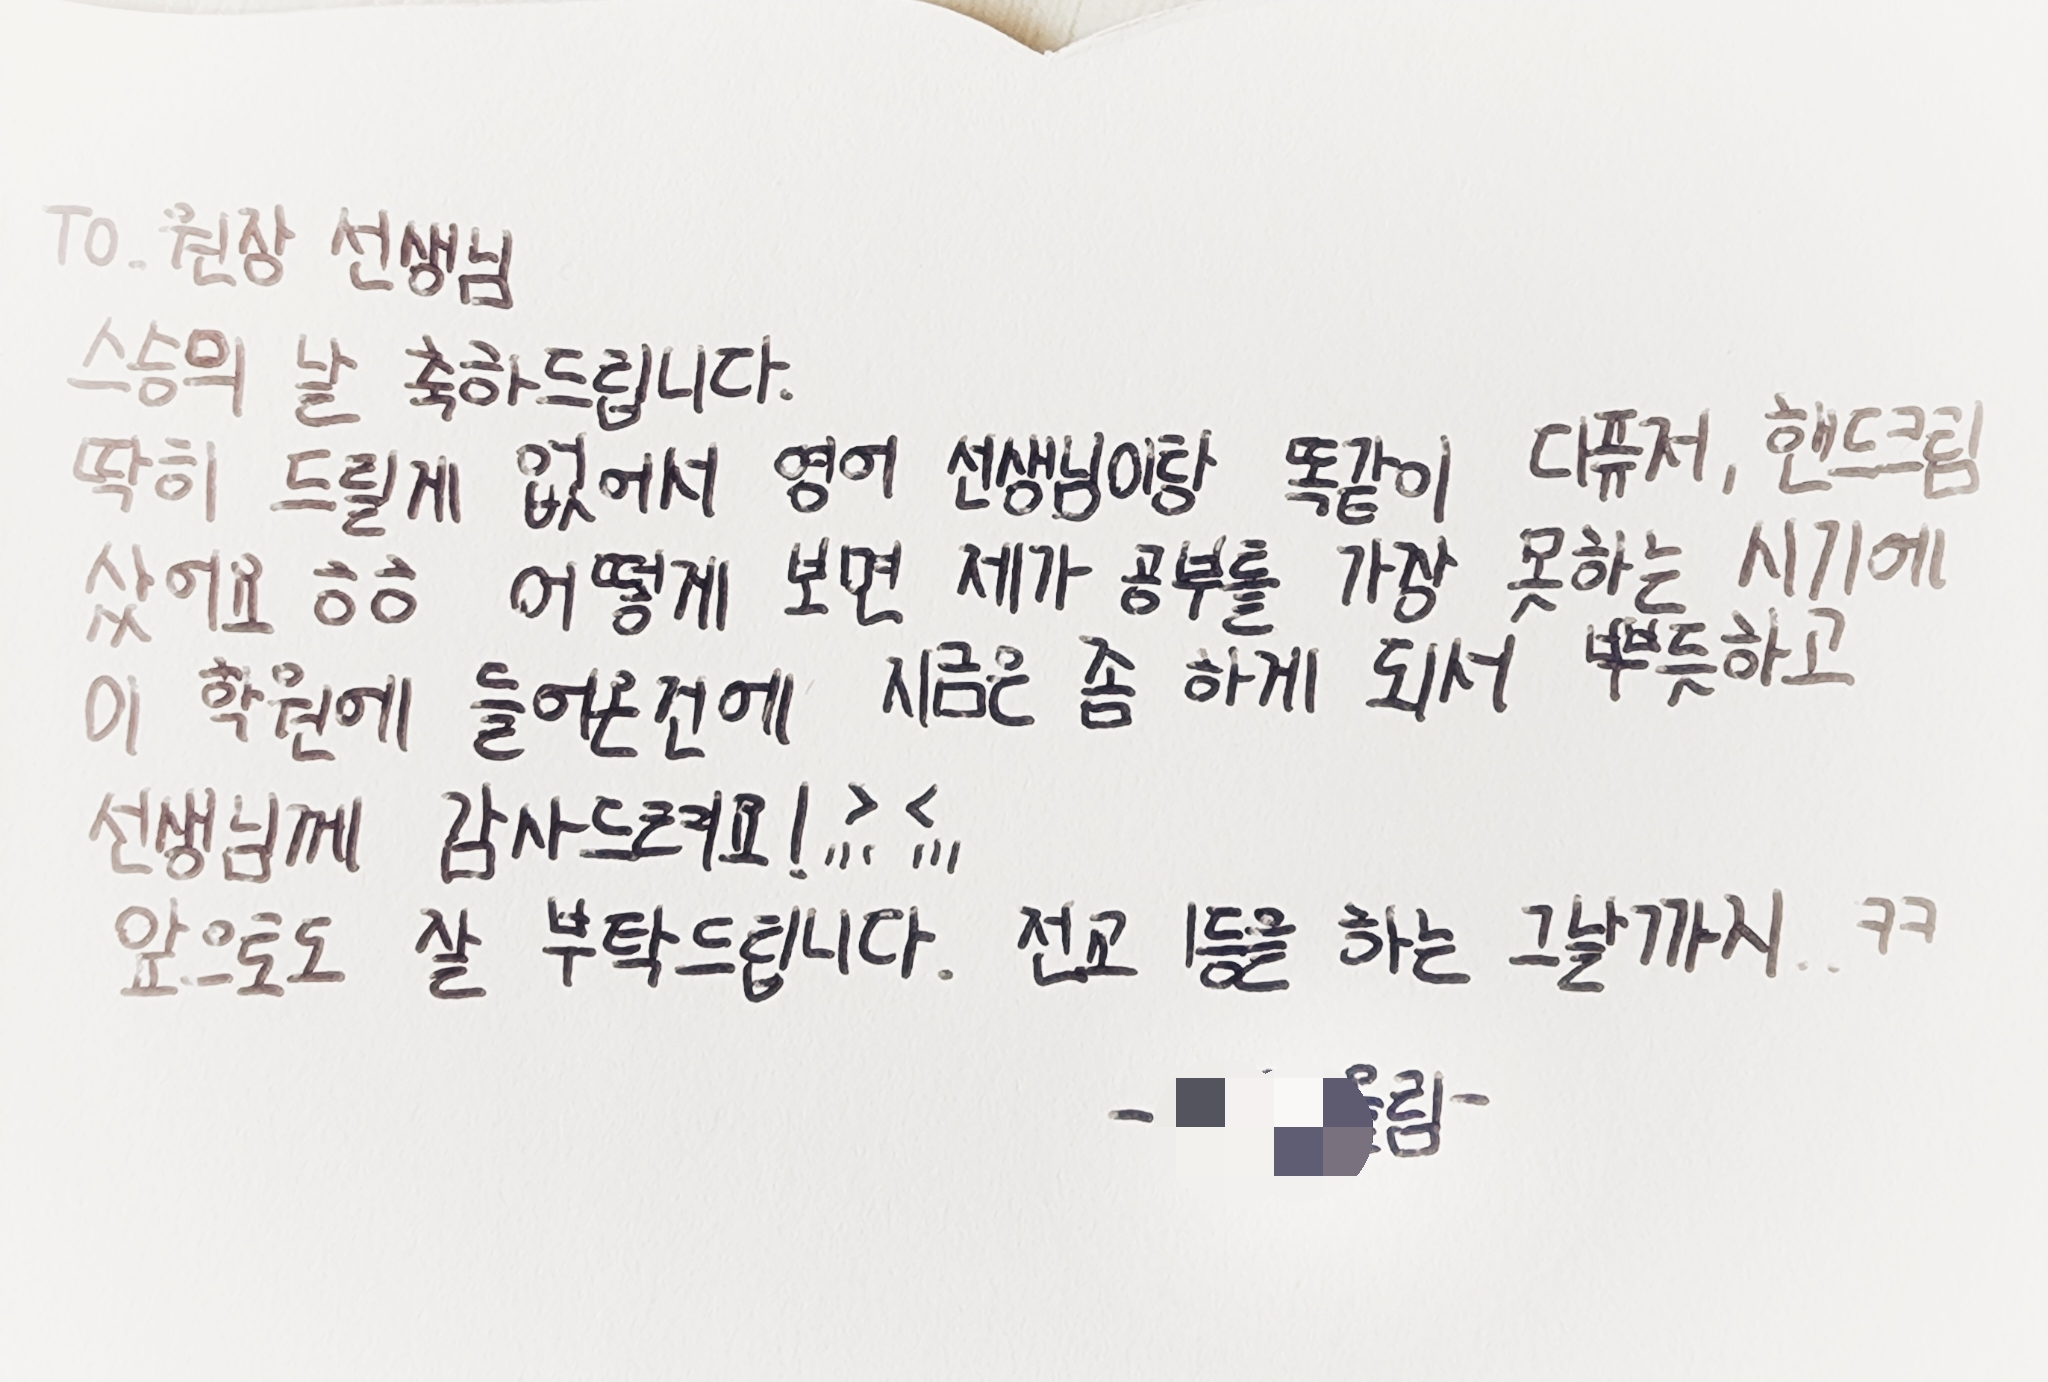 To. 원장 선생님
스승의 날 축하드립니다.
딱히 드릴게 없어서 영어 선생님이랑 똑같이 디퓨저, 핸드크림
샀어요 ㅎㅎ 어떻게 보면 제가 공부를 가장 못하는 시기에
이 학원에 들어온건에 지금은 좀 하게 되서 뿌듯하고
선생님께 감사드려요! > <
앞으로도 잘 부탁드립니다. 전교 1등을 하는 그날까지.. ㅋㅋ
- 올림-